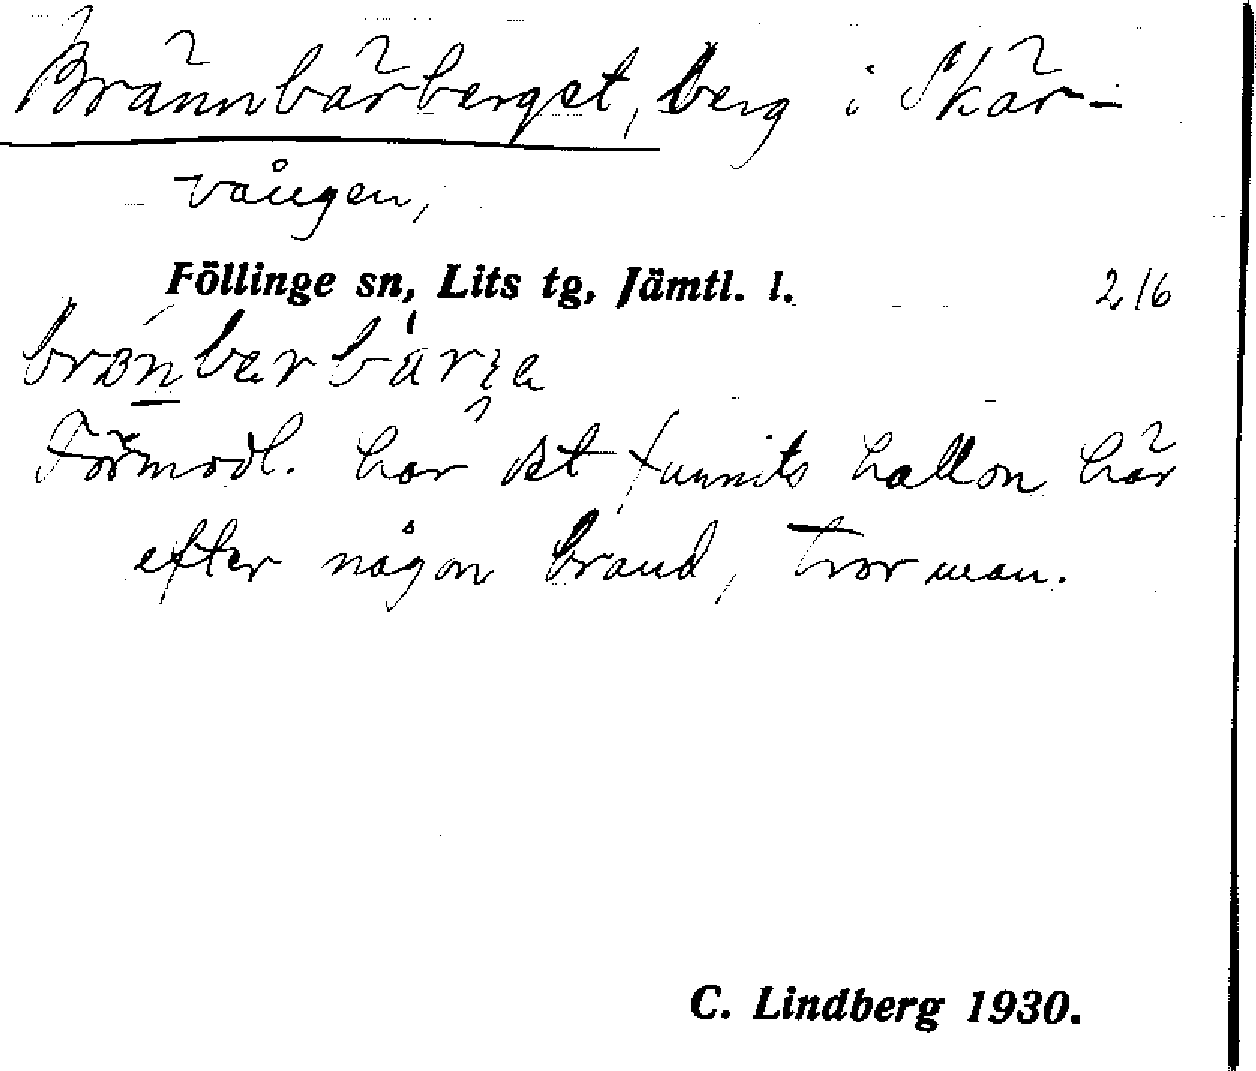 Brännbärberget, berg i Skär-
vången,
Föllinge sn, Lits tg, Jämtl. l. 216
Förmodl. har det funnits hallon här
efter någon brand, tror man.
C. Lindberg 1930.